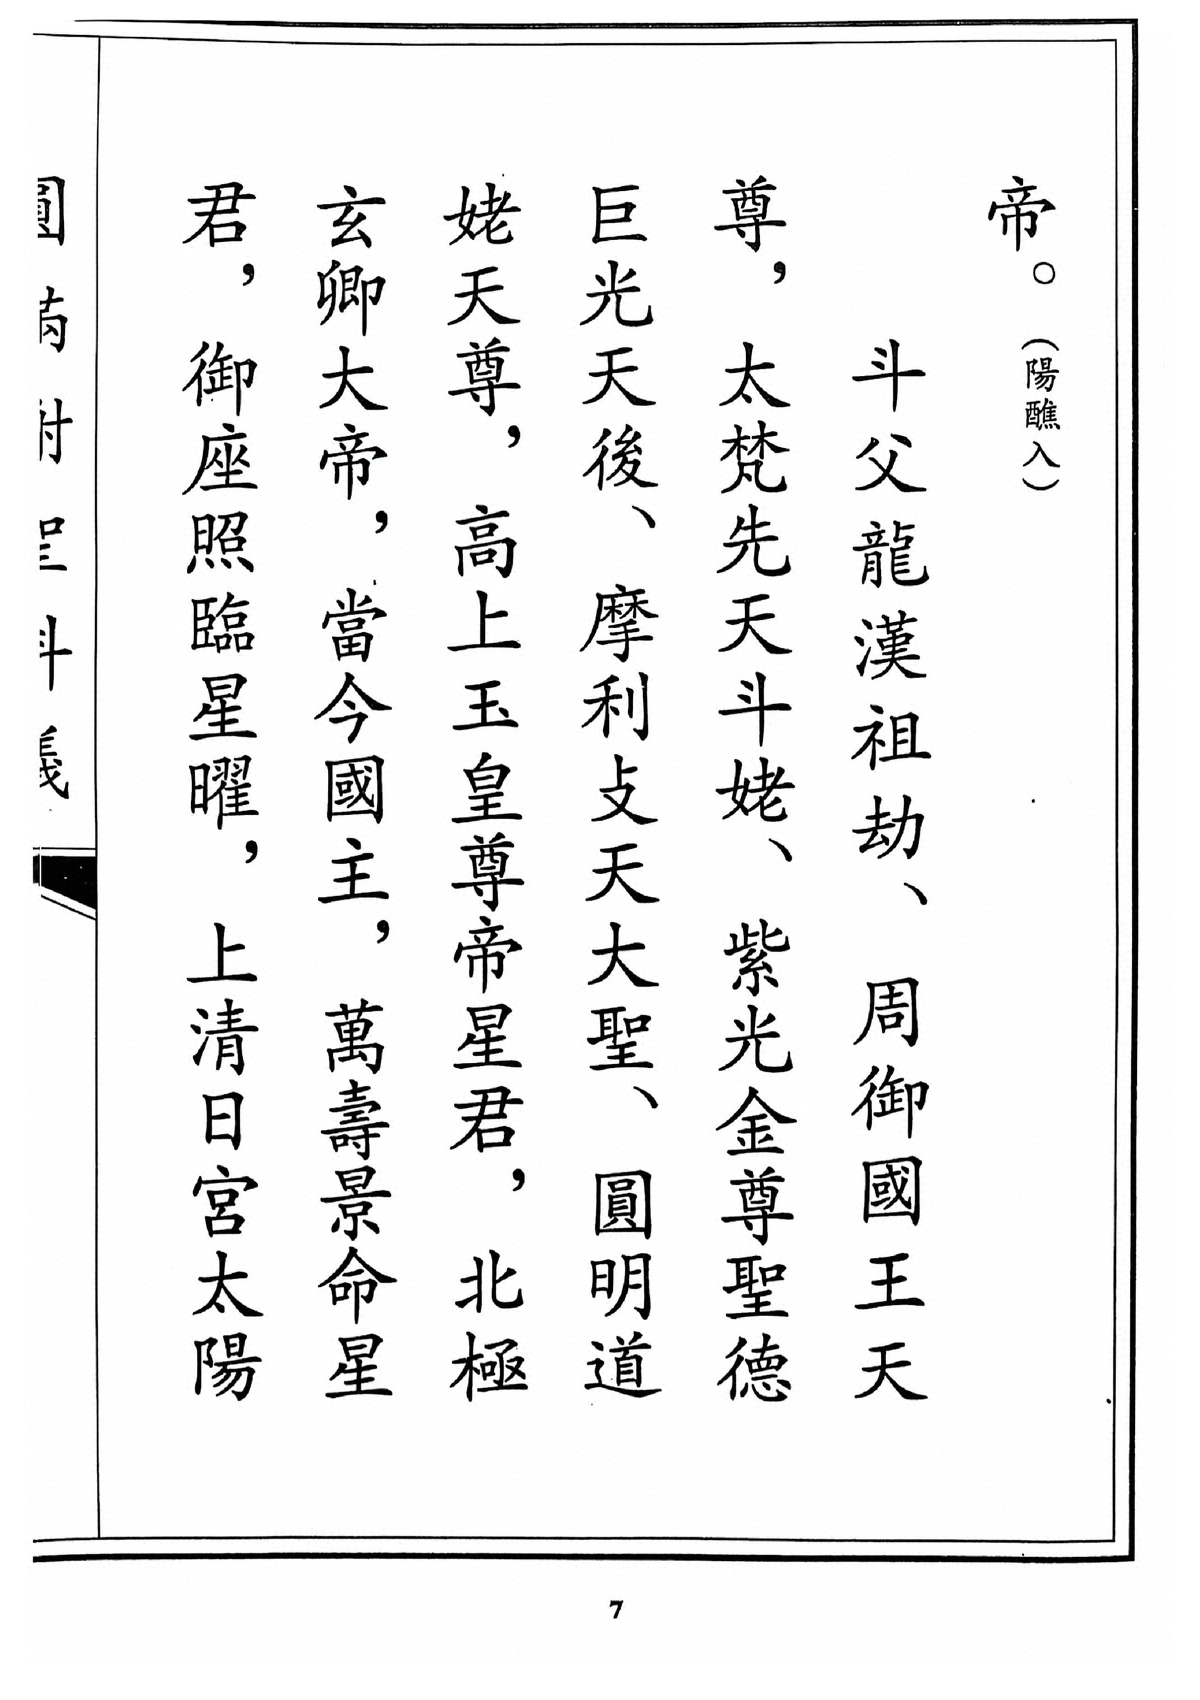 帝。（陽醮入）
斗父龍漢祖劫、周御國王天
尊，太梵先天斗姥、紫光金尊聖德
巨光天後、摩利攴天大聖、圓明道
姥天尊，高上玉皇尊帝星君，北極
玄卿大帝，當今國主，萬壽景命星
君，御座照臨星曜，上清日宮太陽
圓滿附星科儀
7